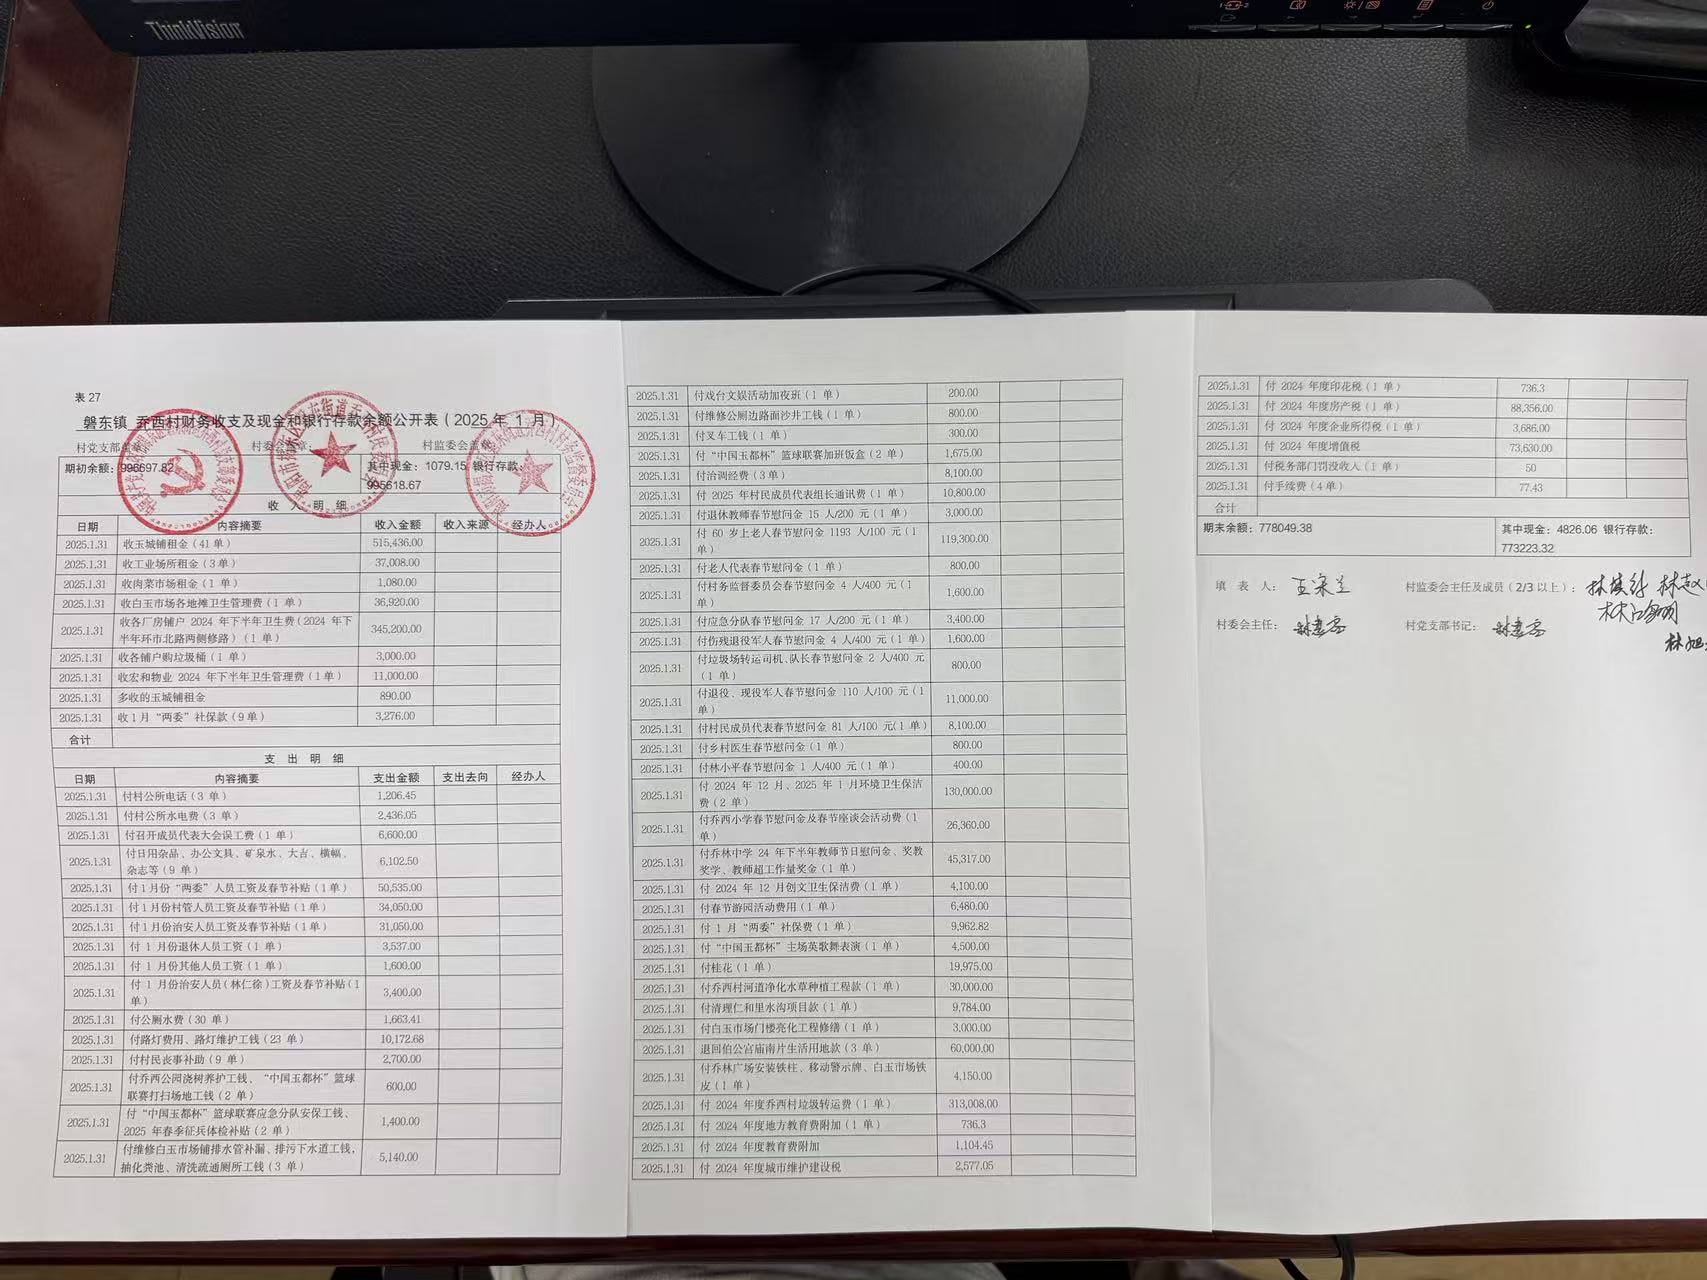 ThinkVision
表 27
磐东镇 乔西村财务收支及现金和银行存款余额公开表（2025 年 1 月）
村党支部盖章： 村委会盖章： 村监委会盖章：
期初余额：996697.82 其中现金：1079.15 银行存款：
995618.67
收 入 明 细
日期 内容摘要 收入金额 收入来源 经办人
2025.1.31 收玉城铺租金（41 单） 515,436.00
2025.1.31 收工业场所租金（3 单） 37,008.00
2025.1.31 收肉菜市场租金（1 单） 1,080.00
2025.1.31 收白玉市场各地摊卫生管理费（1 单） 36,920.00
2025.1.31 收各厂房铺户 2024 年下半年卫生费（2024 年下
半年环市北路两侧修路）（1 单） 345,200.00
2025.1.31 收各铺户购垃圾桶（1 单） 3,000.00
2025.1.31 收宏和物业 2024 年下半年卫生管理费（1 单） 11,000.00
2025.1.31 多收的玉城铺租金 890.00
2025.1.31 收 1 月“两委”社保款（9 单） 3,276.00
合计
支 出 明 细
日期 内容摘要 支出金额 支出去向 经办人
2025.1.31 付村公所电话（3 单） 1,206.45
2025.1.31 付村公所水电费（3 单） 2,436.05
2025.1.31 付召开成员代表大会误工费（1 单） 6,600.00
2025.1.31 付日用杂品、办公文具、矿泉水、大吉、横幅、
杂志等（9 单） 6,102.50
2025.1.31 付 1 月份“两委”人员工资及春节补贴（1 单） 50,535.00
2025.1.31 付 1 月份村管人员工资及春节补贴（1 单） 34,050.00
2025.1.31 付 1 月份治安人员工资及春节补贴（1 单） 31,050.00
2025.1.31 付 1 月份退休人员工资（1 单） 3,537.00
2025.1.31 付 1 月份其他人员工资（1 单） 1,600.00
2025.1.31 付 1 月份治安人员（林仁徐）工资及春节补贴（1
单） 3,400.00
2025.1.31 付公厕水费（30 单） 1,663.41
2025.1.31 付路灯费用、路灯维护工钱（23 单） 10,172.68
2025.1.31 付村民丧事补助（9 单） 2,700.00
2025.1.31 付乔西公园浇树养护工钱、“中国玉都杯”篮球
联赛打扫场地工钱（2 单） 600.00
2025.1.31 付“中国玉都杯”篮球联赛应急分队安保工钱、
2025 年春季征兵体检补贴（2 单） 1,400.00
2025.1.31 付维修白玉市场铺排水管补漏、排污下水道工钱，
抽化粪池、清洗疏通厕所工钱（3 单） 5,140.00
2025.1.31 付戏台文娱活动加夜班（1 单） 200.00
2025.1.31 付维修公厕边路面沙井工钱（1 单） 800.00
2025.1.31 付叉车工钱（1 单） 300.00
2025.1.31 付“中国玉都杯”篮球联赛加班饭盒（2 单） 1,675.00
2025.1.31 付治调经费（3 单） 8,100.00
2025.1.31 付 2025 年村民成员代表组长通讯费（1 单） 10,800.00
2025.1.31 付退休教师春节慰问金 15 人/200 元（1 单） 3,000.00
2025.1.31 付 60 岁上老人春节慰问金 1193 人/100 元（1
单） 119,300.00
2025.1.31 付老人代表春节慰问金（1 单） 800.00
2025.1.31 付村务监督委员会春节慰问金 4 人/400 元（1
单） 1,600.00
2025.1.31 付应急分队春节慰问金 17 人/200 元（1 单） 3,400.00
2025.1.31 付伤残退役军人春节慰问金 4 人/400 元（1 单） 1,600.00
2025.1.31 付垃圾场转运司机、队长春节慰问金 2 人/400 元
（1 单） 800.00
2025.1.31 付退役、现役军人春节慰问金 110 人/100 元（1
单） 11,000.00
2025.1.31 付村民成员代表春节慰问金 81 人/100 元（1 单） 8,100.00
2025.1.31 付乡村医生春节慰问金（1 单） 800.00
2025.1.31 付林小平春节慰问金 1 人/400 元（1 单） 400.00
2025.1.31 付 2024 年 12 月、2025 年 1 月环境卫生保洁
费（2 单） 130,000.00
2025.1.31 付乔西小学春节慰问金及春节座谈会活动费（1
单） 26,360.00
2025.1.31 付乔林中学 24 年下半年教师节日慰问金、奖教
奖学、教师超工作量奖金（1 单） 45,317.00
2025.1.31 付 2024 年 12 月创文卫生保洁费（1 单） 4,100.00
2025.1.31 付春节游园活动费用（1 单） 6,480.00
2025.1.31 付 1 月“两委”社保费（1 单） 9,962.82
2025.1.31 付“中国玉都杯”主场英歌舞表演（1 单） 4,500.00
2025.1.31 付桂花（1 单） 19,975.00
2025.1.31 付乔西村河道净化水草种植工程款（1 单） 30,000.00
2025.1.31 付清理仁和里水沟项目款（1 单） 9,784.00
2025.1.31 付白玉市场门楼亮化工程修缮（1 单） 3,000.00
2025.1.31 退回伯公宫庙南片生活用地款（3 单） 60,000.00
2025.1.31 付乔林广场安装铁柱、移动警示牌、白玉市场铁
皮（1 单） 4,150.00
2025.1.31 付 2024 年度乔西村垃圾转运费（1 单） 313,008.00
2025.1.31 付 2024 年度地方教育费附加（1 单） 736.3
2025.1.31 付 2024 年度教育费附加 1,104.45
2025.1.31 付 2024 年度城市维护建设税 2,577.05
2025.1.31 付 2024 年度印花税（1 单） 736.3
2025.1.31 付 2024 年度房产税（1 单） 88,356.00
2025.1.31 付 2024 年度企业所得税（1 单） 3,686.00
2025.1.31 付 2024 年度增值税 73,630.00
2025.1.31 付税务部门罚没收入（1 单） 50
2025.1.31 付手续费（4 单） 77.43
合计
期末余额：778049.38 其中现金：4826.06 银行存款：
773223.32
填 表 人： 村监委会主任及成员（2/3 以上）：
村委会主任： 村党支部书记：